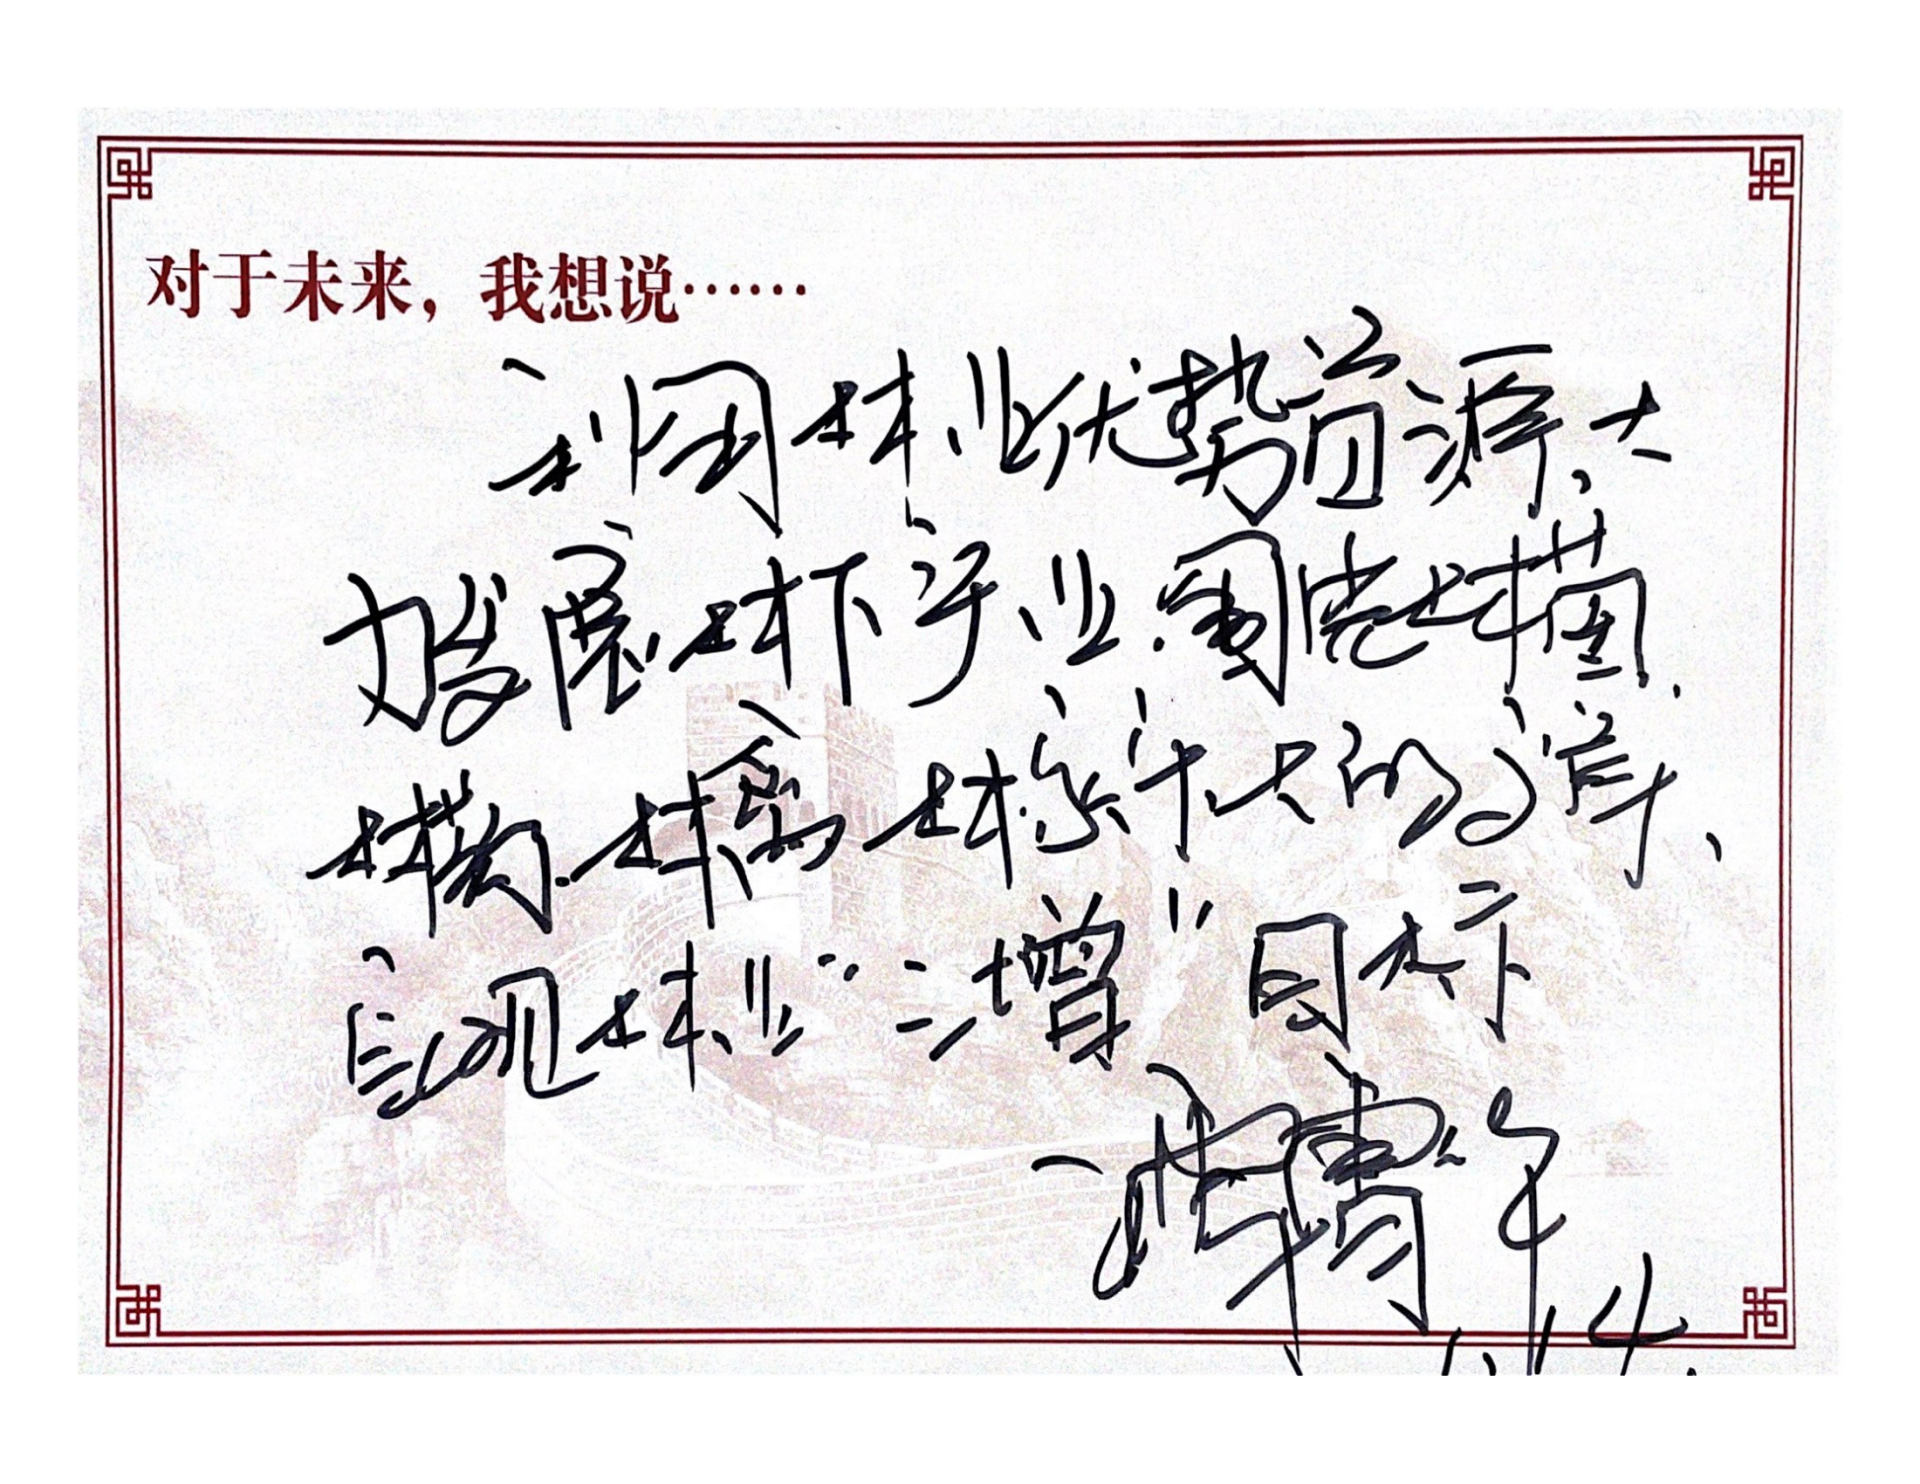 对于未来，我想说……
利用林业优势资源、大
力发展林下产业.围绕林菌.
林菊.林禽.林家等大的文章、
实现林业“三增”目标
1.14.